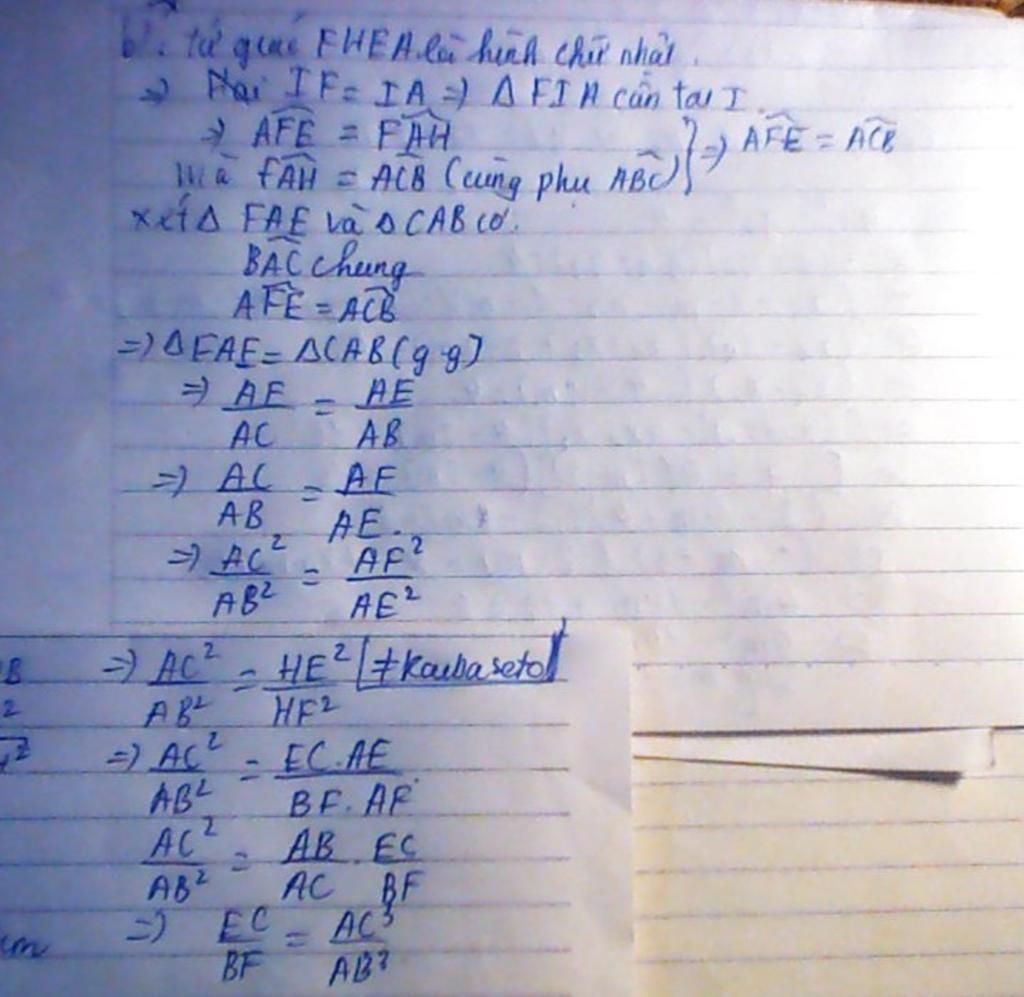 b'. tứ giác FHEA là hình chữ nhật.
=> IF = IA => Δ FIA cân tại I.
=> AFE = FAH
mà FAH = ACB (cùng phụ ABC) } => AFE = ACB
xét Δ FAE và Δ CAB có.
BAC chung
AFE = ACB
=> Δ FAE = Δ CAB (g.g)
=> AF/AC = AE/AB
=> AC/AB = AF/AE.
=> AC²/AB² = AF²/AE²
B => AC²/AB² = HE²/HF² [#Kaibaseto]
2
=> AC²/AB² = EC.AE/BF.AF
AC²/AB² = AB/AC . EC/BF
cm => EC/BF = AC³/AB³